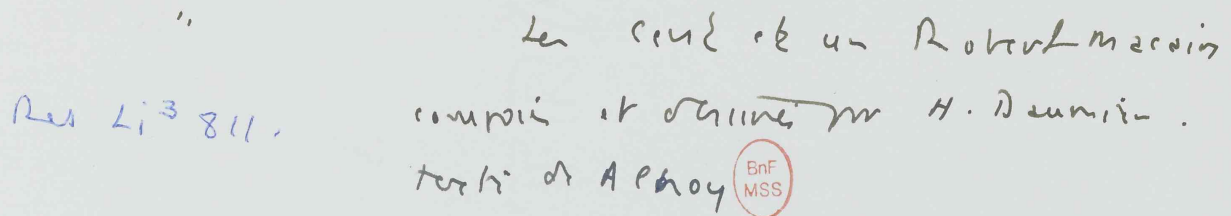 "
Les cent et un Robert Macaire
Res Li³ 811. composés et dessinés par H. Daumier.
texte de Alhoy
BnF
MSS